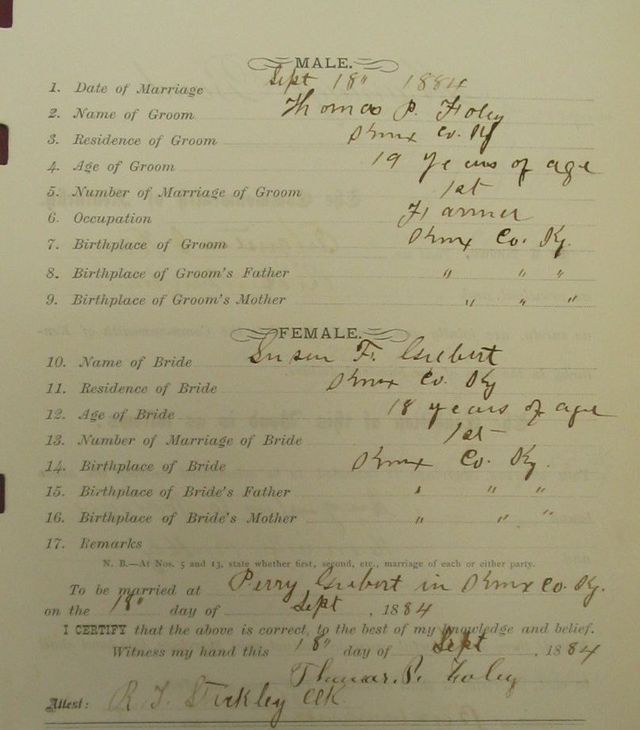 MALE.
1. Date of Marriage Sept 18" 1884
2. Name of Groom Thomas P. Foley
3. Residence of Groom Knox Co. Ky
4. Age of Groom 19 years of age
5. Number of Marriage of Groom 1st
6. Occupation Farmer
7. Birthplace of Groom Knox Co. Ky.
8. Birthplace of Groom's Father " " "
9. Birthplace of Groom's Mother " " "
FEMALE.
10. Name of Bride Susan F. Guebert
11. Residence of Bride Knox Co. Ky
12. Age of Bride 18 years of age
13. Number of Marriage of Bride 1st
14. Birthplace of Bride Knox Co. Ky.
15. Birthplace of Bride's Father " " "
16. Birthplace of Bride's Mother " " "
17. Remarks
N. B.—At Nos. 5 and 13, state whether first, second, etc., marriage of each or either party.
To be married at Perry Guebert in Knox Co. Ky.
on the 18" day of Sept , 1884
I CERTIFY that the above is correct, to the best of my knowledge and belief.
Witness my hand this 18" day of Sept , 1884
Thomas. P. Foley
Attest: Clk